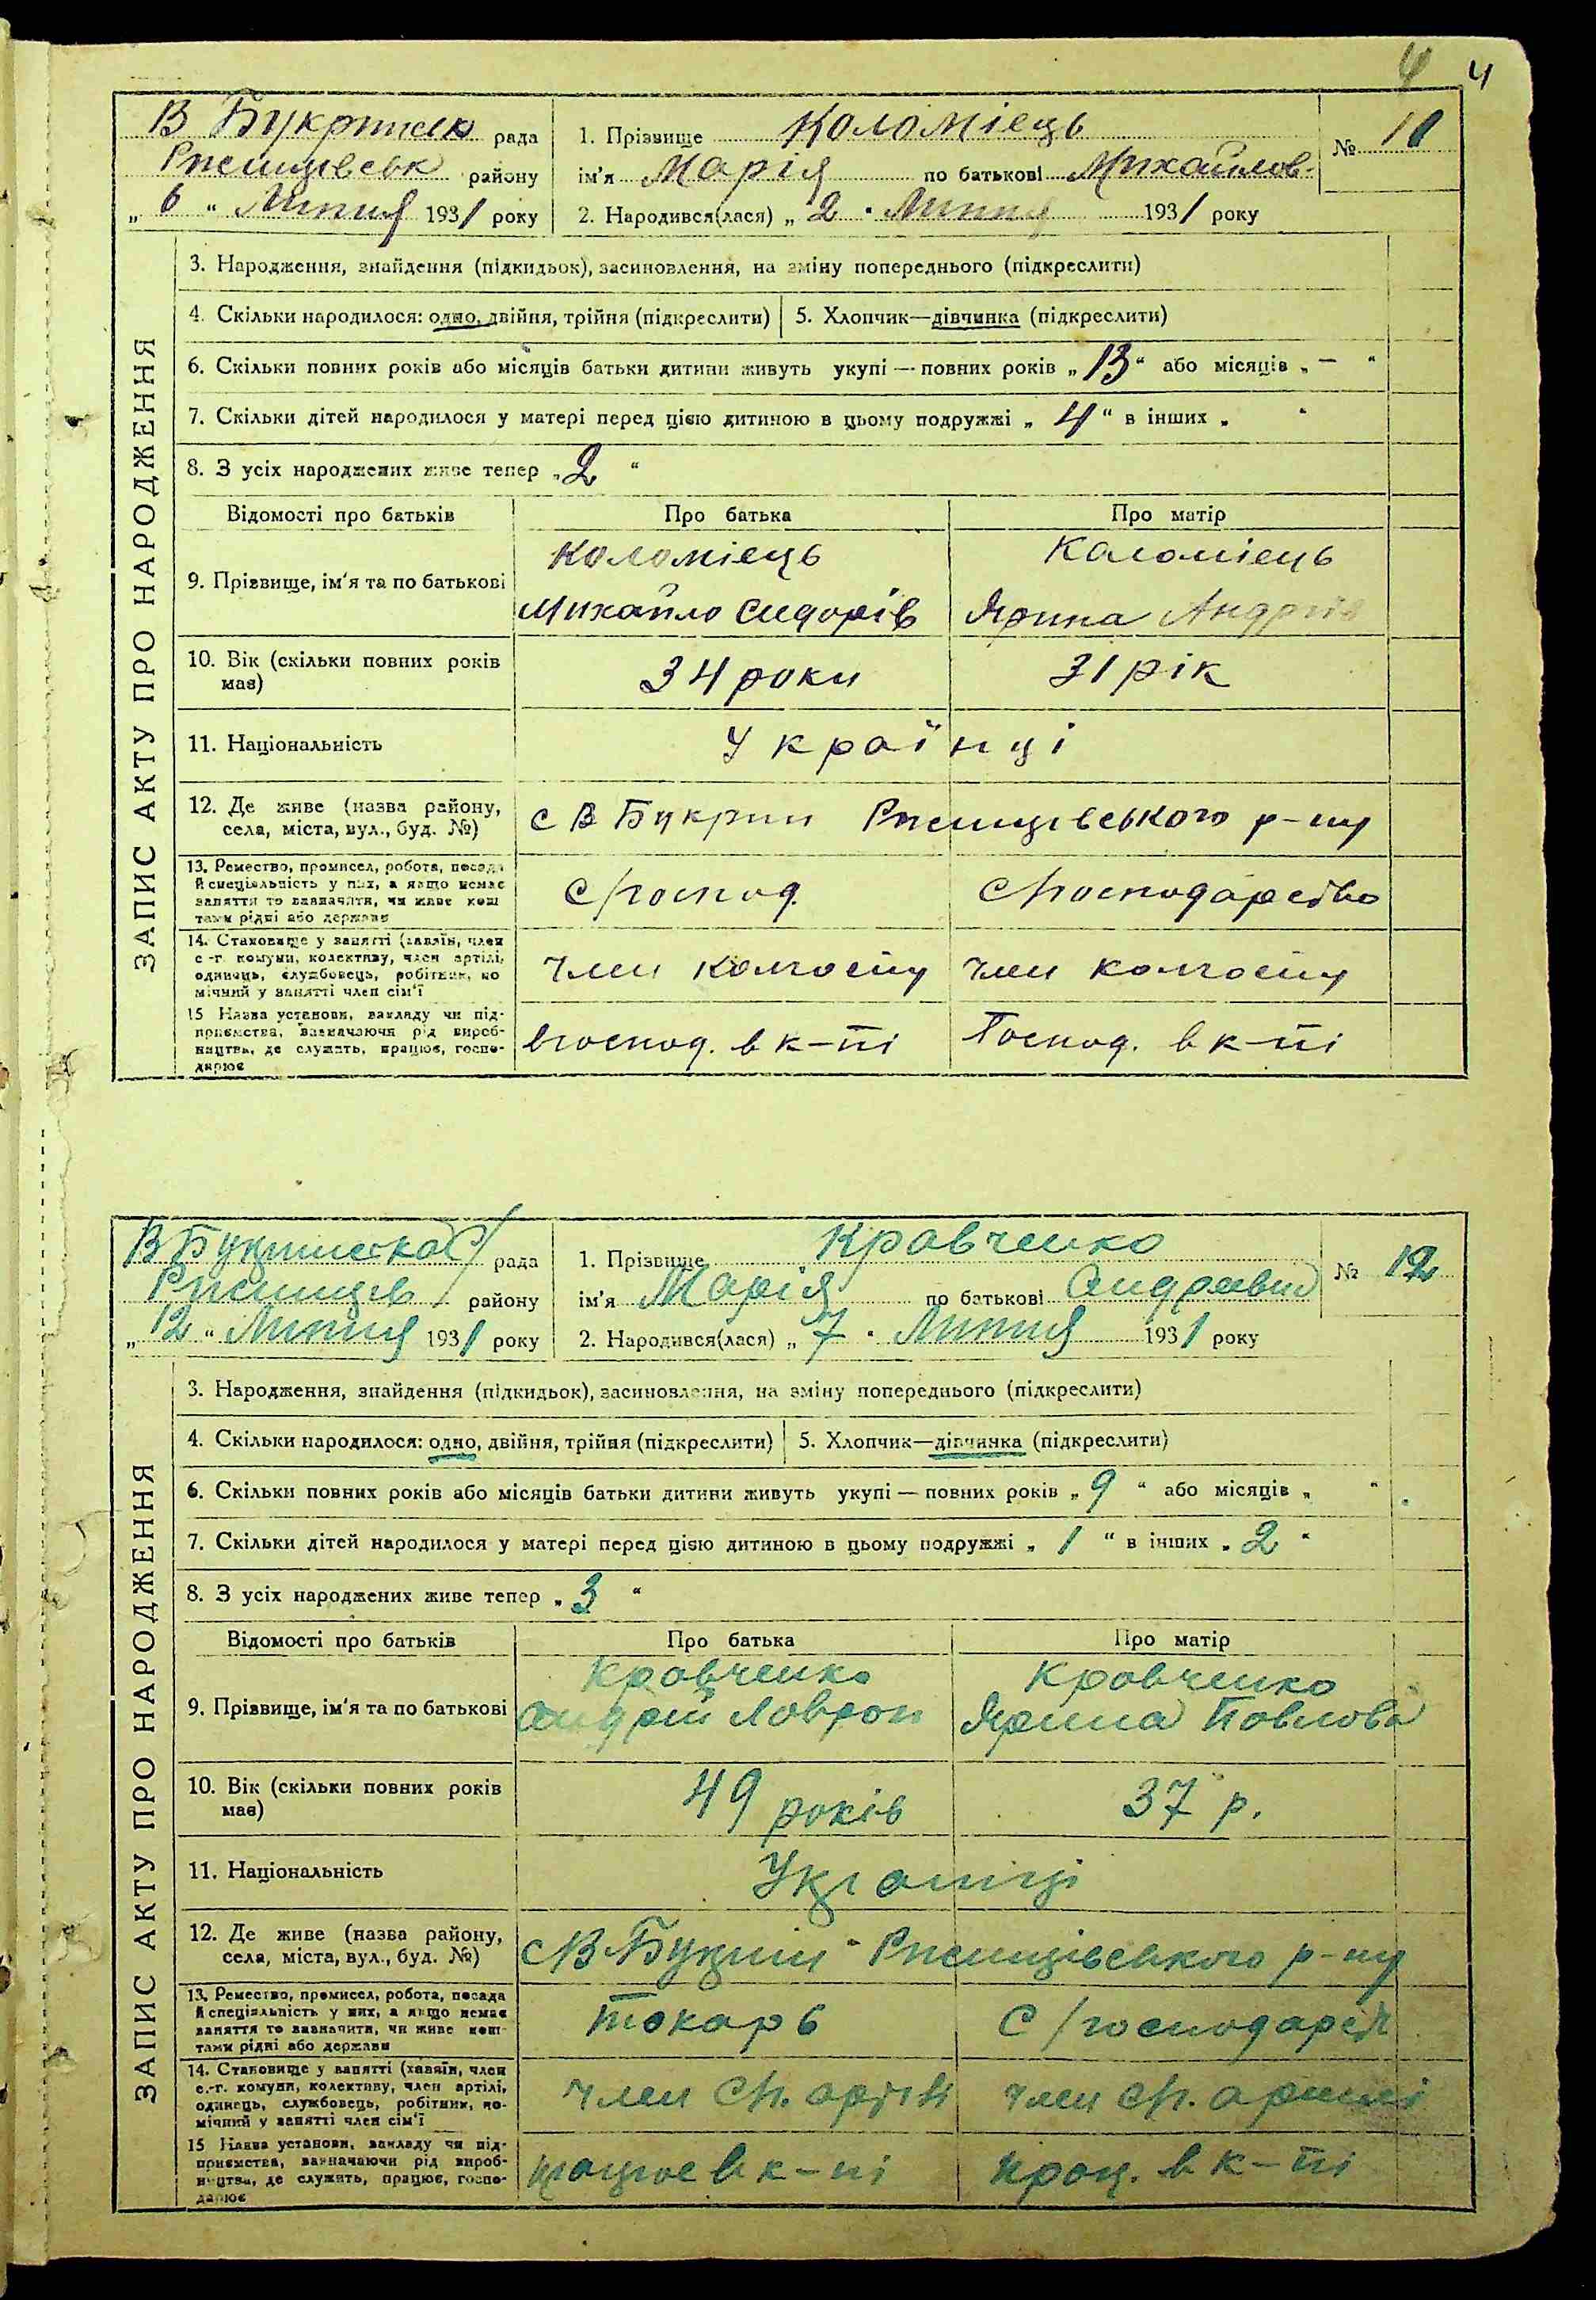 4 4
В Букринськ рада
Ржищівськ району
„ 6 “ Липня 1931 року
1. Прізвище Коломієць
ім'я Марія по батькові Михайлов.
2. Народився(лася) „ 2 “ Липня 1931 року
№ 11
ЗАПИС АКТУ ПРО НАРОДЖЕННЯ
3. Народження, знайдення (підкидьок), засиновлення, на зміну попереднього (підкреслити)
4. Скільки народилося: одно, двійня, трійня (підкреслити) 5. Хлопчик—дівчинка (підкреслити)
6. Скільки повних років або місяців батьки дитини живуть укупі — повних років „ 13 “ або місяців „ — “
7. Скільки дітей народилося у матері перед цією дитиною в цьому подружжі „ 4 “ в інших „ “
8. З усіх народжених живе тепер „ 2 “
Відомості про батьків Про батька Про матір
9. Прізвище, ім'я та по батькові
Коломієць Коломієць
Михайло Сидорів Ярина Андріїв
10. Вік (скільки повних років має) 34 роки 31 рік
11. Національність Українці
12. Де живе (назва району, села, міста, вул., буд. №) с В Букрин Ржищівського р-ну
13. Ремество, промисел, робота, посада
й спеціяльність у них, а якщо немає
заняття то зазначити, чи живе кош-
тами рідні або держави
с/господ. с/господарство
14. Становище у занятті (хазяїн, член
с.-г. комуни, колективу, член артілі,
одинець, службовець, робітник, по-
мічний у занятті член сім'ї
член колгоспу член колгоспу
15 Назва установи, закладу чи під-
приємства, зазначаючи рід вироб-
ництва, де служить, працює, госпо-
дарює
господ. в к-ті Господ. в к-ті
В Букринська С/ рада
Ржищів району
„ 12 “ Липня 1931 року
1. Прізвище Кравченко
ім'я Марія по батькові Андріївна
2. Народився(лася) „ 7 “ Липня 1931 року
№ 12
ЗАПИС АКТУ ПРО НАРОДЖЕННЯ
3. Народження, знайдення (підкидьок), засиновлення, на зміну попереднього (підкреслити)
4. Скільки народилося: одно, двійня, трійня (підкреслити) 5. Хлопчик—дівчинка (підкреслити)
6. Скільки повних років або місяців батьки дитини живуть укупі — повних років „ 9 “ або місяців „ “
7. Скільки дітей народилося у матері перед цією дитиною в цьому подружжі „ 1 “ в інших „ 2 “
8. З усіх народжених живе тепер „ 3 “
Відомості про батьків Про батька Про матір
9. Прізвище, ім'я та по батькові
Кравченко Кравченко
Андрій Лаврон Ярина Павлова
10. Вік (скільки повних років має) 49 років 37 р.
11. Національність Українці
12. Де живе (назва району, села, міста, вул., буд. №) с/В Букрин Ржищівського р-ну
13. Ремество, промисел, робота, посада
й спеціяльність у них, а якщо немає
заняття то зазначити, чи живе кош-
тами рідні або держави
токарь с/господар
14. Становище у занятті (хазяїн, член
с.-г. комуни, колективу, член артілі,
одинець, службовець, робітник, по-
мічний у занятті член сім'ї
член с/г. артілі член с/г. артілі
15 Назва установи, закладу чи під-
приємства, зазначаючи рід вироб-
ництва, де служить, працює, госпо-
дарює
працює в к-ті прац. в к-ті